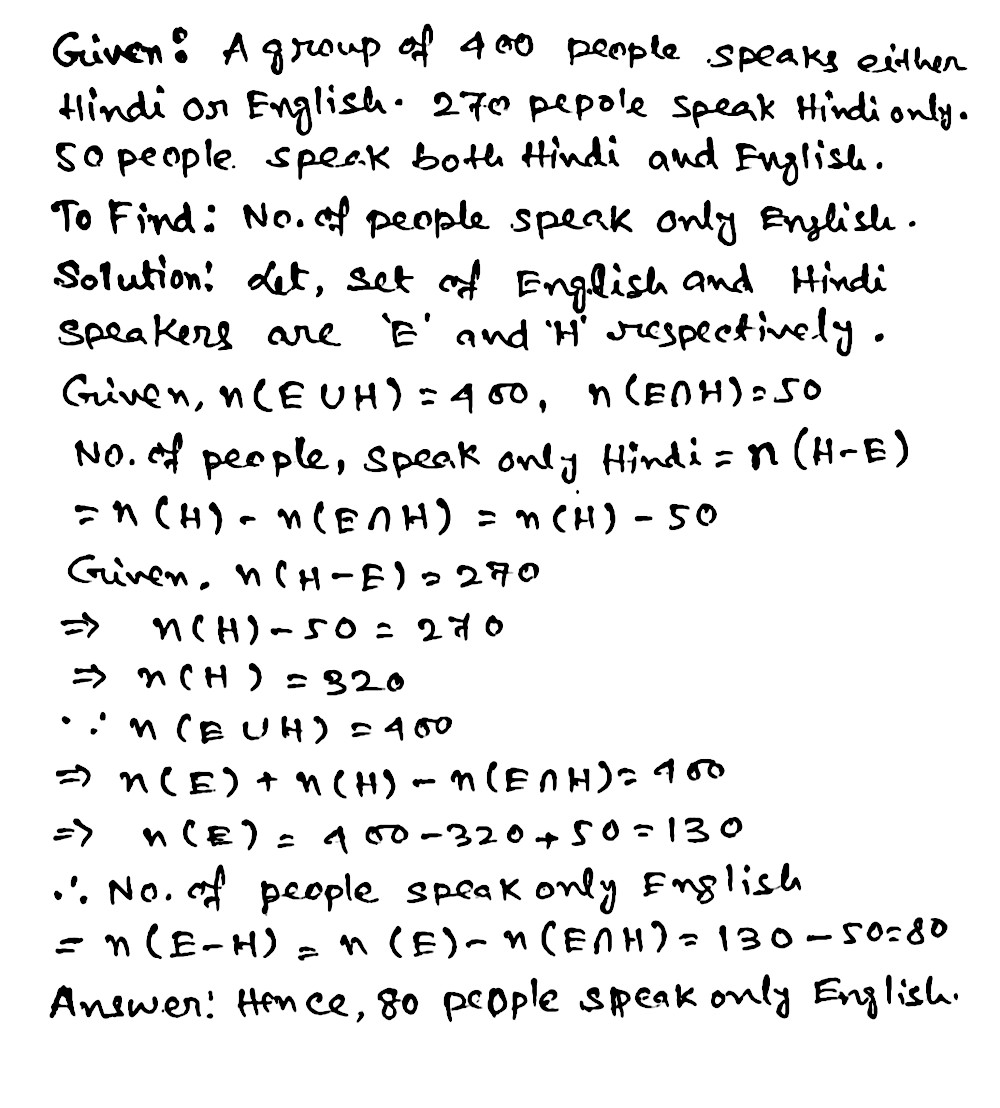 Given: A group of 400 people speaks either
Hindi or English. 270 pepole speak Hindi only.
50 people speak both Hindi and English.
To Find: No. of people speak only English.
Solution: Let, set of English and Hindi
speakers are 'E' and 'H' respectively.
Given, n(E∪H) = 400, n(E∩H) = 50
No. of people, speak only Hindi = n(H-E)
= n(H) - n(E∩H) = n(H) - 50
Given, n(H-E) = 270
⇒ n(H) - 50 = 270
⇒ n(H) = 320
∵ n(E∪H) = 400
⇒ n(E) + n(H) - n(E∩H) = 400
⇒ n(E) = 400-320+50 = 130
∴ No. of people speak only English
= n(E-H) = n(E) - n(E∩H) = 130-50=80
Answer: Hence, 80 people speak only English.